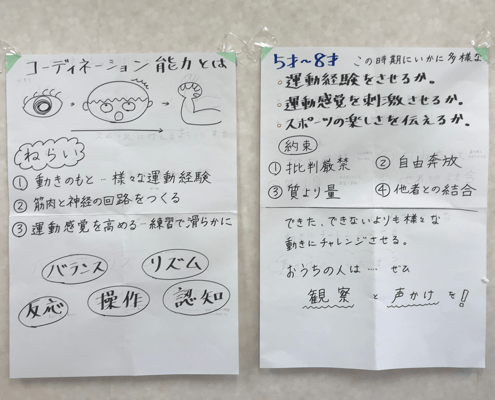 コーディネーション能力とは
ねらい
① 動きのもと…様々な運動経験
② 筋肉と神経の回路をつくる
③ 運動感覚を高める…練習で滑らかに
バランス リズム
反応 操作 認知
5才～8才 この時期にいかに多様な
○運動経験をさせるか。
○運動感覚を刺激させるか。
○スポーツの楽しさを伝えるか。
約束
① 批判厳禁 ② 自由奔放
③ 質より量 ④ 他者との結合
できた、できないよりも様々な
動きにチャレンジさせる。
おうちの人は … ぜひ
観察 と 声かけ を!!